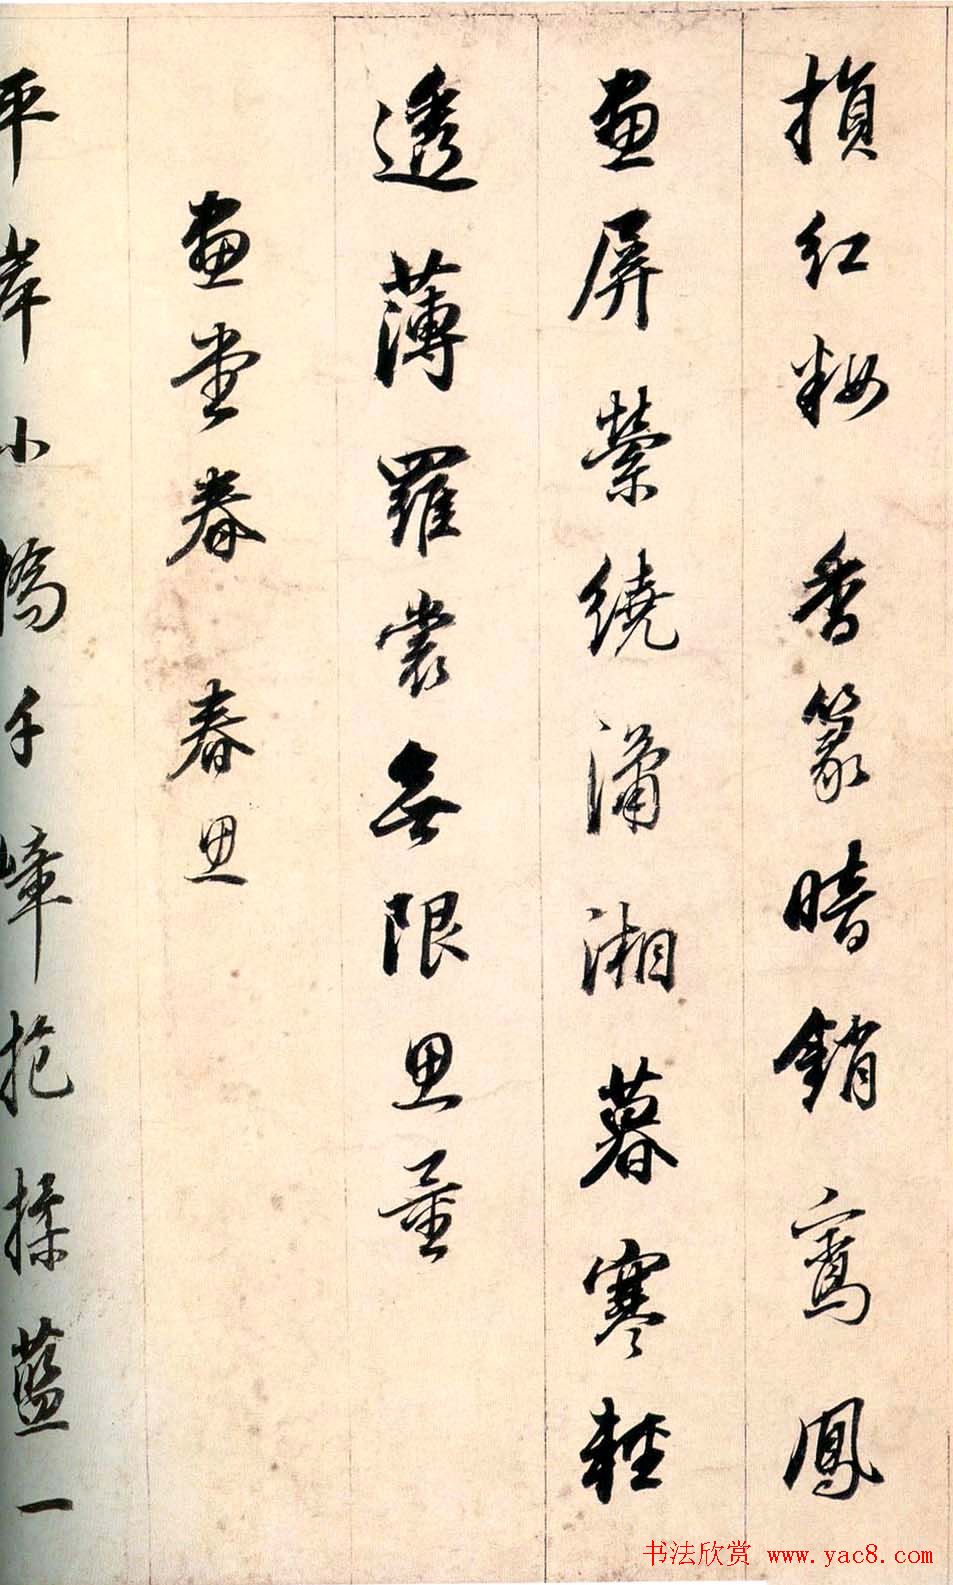 損紅粧 香篆暗銷鸞鳳
畫屏縈繞瀟湘暮寒輕
透薄羅裳無限思量
畫堂春 春思
平岸小橋千嶂抱揉藍一
书法欣赏 www.yac8.com